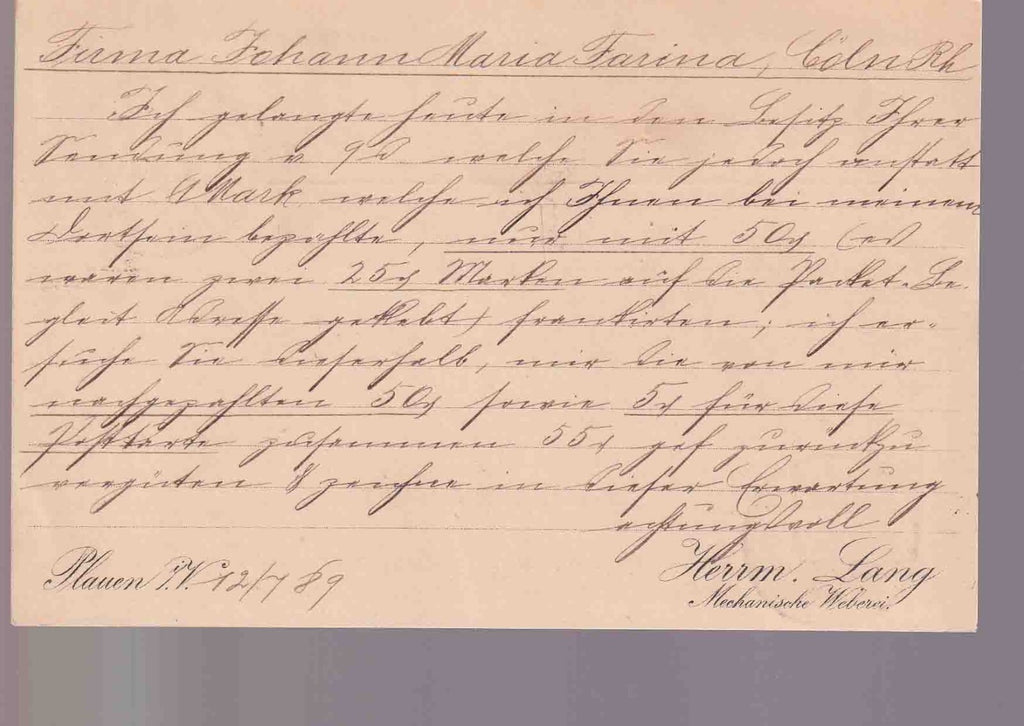 Firma Johann Maria Farina, Cöln Rh
Ich gelangte heute in den Besitz Ihrer
Sendung v. 9d. welche Sie jedoch anstatt
mit 1 Mark welche ich Ihnen bei meinem
Dortsein bezahlte, nur mit 50₰ (es
waren zwei 25₰ Marken auf die Packet-Be-
gleit Adresse geklebt) frankirten; ich er-
suche Sie dieserhalb, mir die von mir
nachgezahlten 50₰ sowie 5₰ für diese
Postkarte zusammen 55₰ gef zurückzu
vergüten & zeichne in dieser Erwartung
achtungsvoll
Plauen i.V. 12/7 89
Herrm. Lang
Mechanische Weberei.